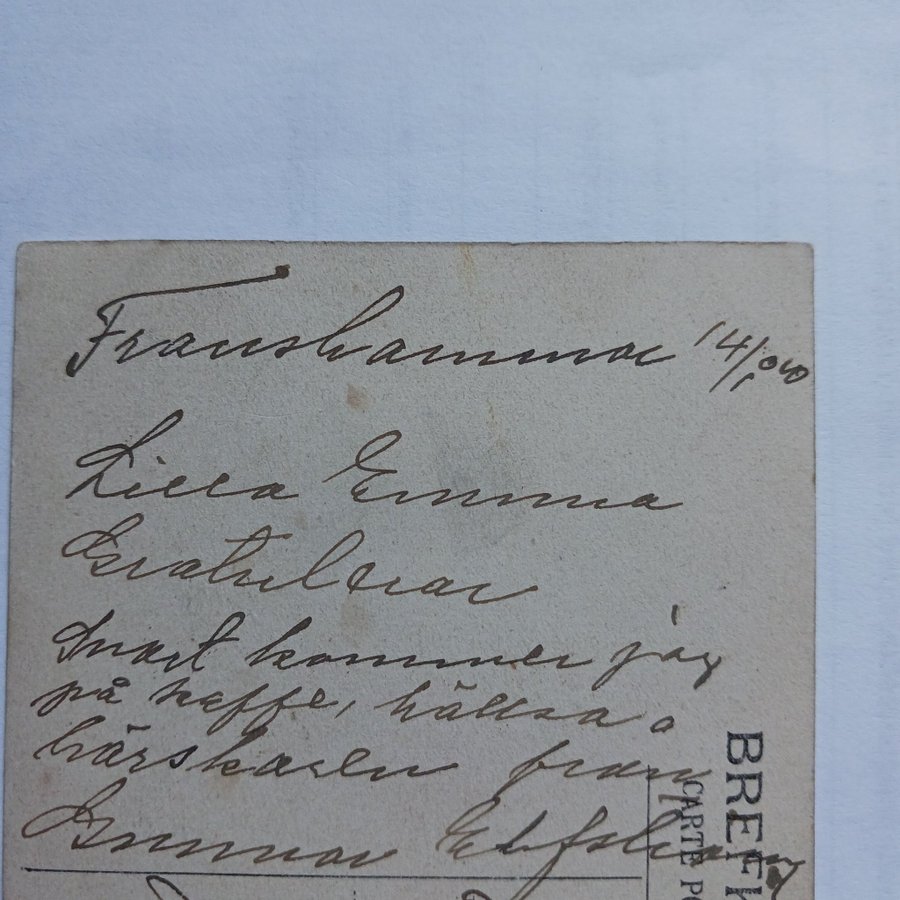 Franshammar 14/
Lilla Emma
Gratulerar
Snart kommer jag
på kaffe, hällsa
härskaren från
Gunnar
BREFK
CARTE PO